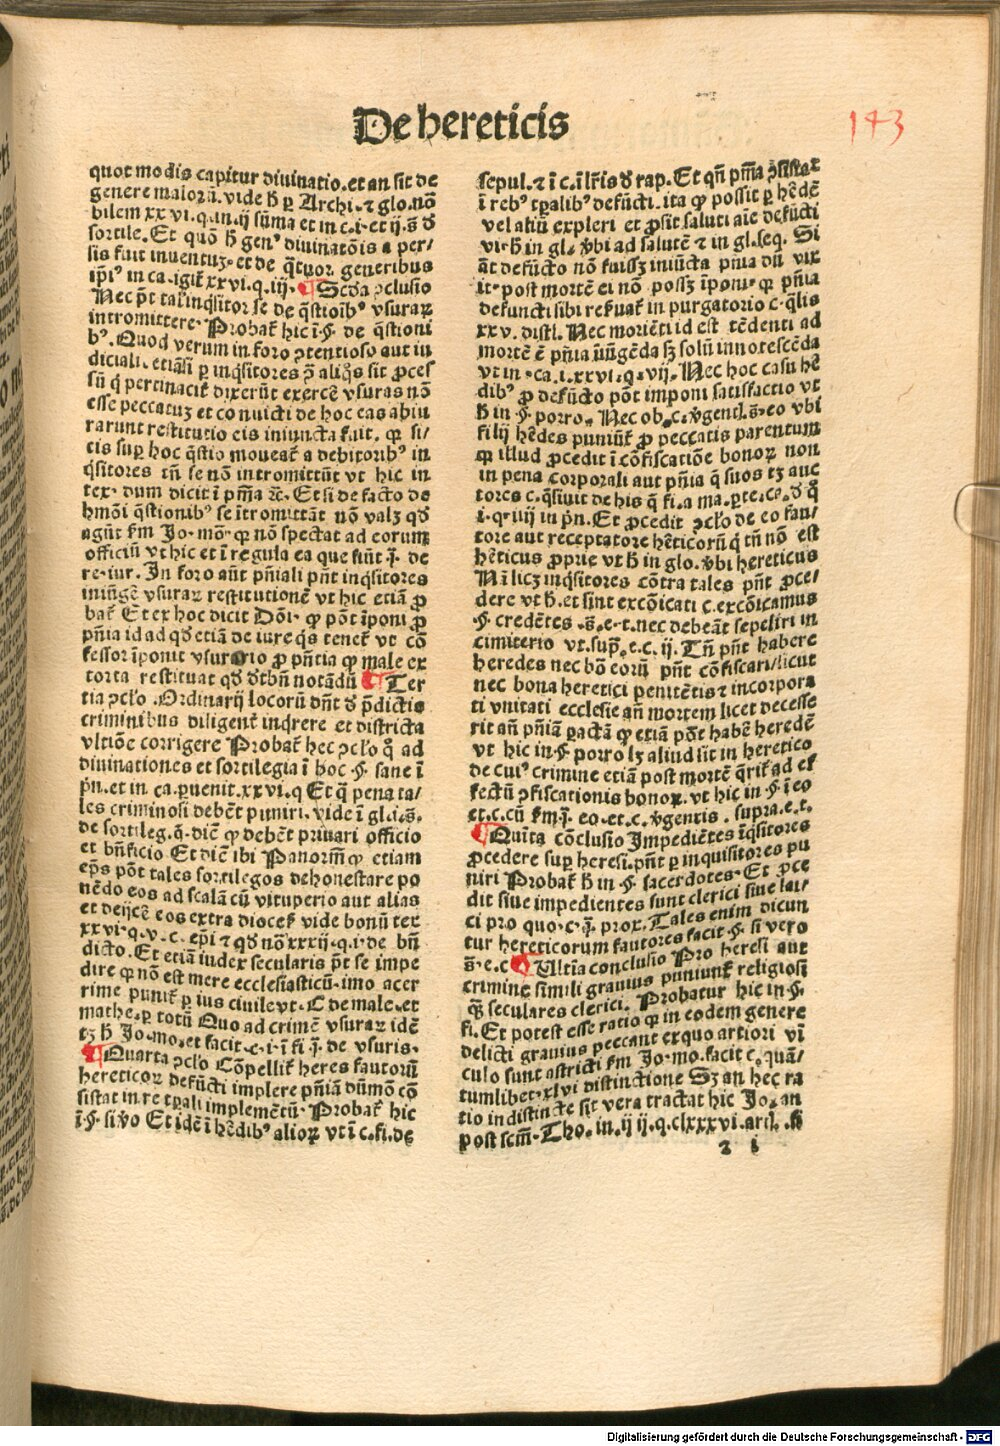 De hereticis
143
quot modis capitur diuinatio. et an sit de
genere maloꝝ. vide ħ ꝑ Archi. ⁊ glo. nō
bilem xxvi. q. in. ij sūma et in c. i. et ij. s̄ đ
sortile. Et quō ħ genꝰ diuinatōis a per/
sis fuit inuentuꝫ. et de q̄tuor generibus
ip̄iꝰ in ca. igit᷑ xxvi. q. iij. Scđa ↄclusio
Nec pn̄t tal' inq̄sitor se de q̄stioibꝰ vsuraꝝ
intromittere. Probat᷑ hic i §. de q̄stioni
bꝰ. Quod verum in foro ↄtentioso aut iu
diciali. etiāsi ꝑ inq̄sitores ꝯ̄ aliq̄s sit ꝓces
sū q̇ pertinacit᷑ dixerūt exercē vsuras nō
esse peccatuꝫ et conuicti de hoc eas abiu
rarunt restitutio eis iniuncta fuit. ꝙ si/
cis suꝑ hoc q̄stio moueat᷑ a debitoribꝰ in
q̄sitores tn̄ se nō intromittūt vt hic in
tex. dum dicit i pn̄ma ꝛc̄. Et si de facto de
hm̄ōi q̄stionibꝰ se ītromittāt nō valꝫ qđ
agūt fm̄ Jo. mo. ꝙ nō spectat ad eorum
officiū vt hic et ī regula ea que fiūt §. de
re. iur. In foro aūt pn̄iali pn̄t inq̄sitores
iniūgē vsuraꝝ restitutionē vt hic etiā ꝓ
bat᷑ Et ex hoc dicit Dōi. ꝙ pōt īponi ꝓ
pn̄ia id ad qđ etiā de iure q̇s tenet᷑ vt cō
fessor īponit vsurario ꝓ pn̄tia ꝙ male ex
torta restituat qđ đtbn̄ notādū Ter
tia ↄclo. Ordinarij locoꝝ dn̄t đ p̄dictis
criminibus diligent᷑ inq̄rere et districta
vltiōe corrigere Probat᷑ hec ↄclo q̊ ad
diuinationes et sortilegia ī hoc §. sane ī
pn̄. et in ca. ꝑuenit. xxvi. q Et q̄ pena ta/
les criminosi debēt puniri. vide ī gl. i. s̄.
de sortileg. q. diē ꝙ debēt priuari officio
et bn̄ficio Et diē ibi Panormꝰ ꝙ etiam
ep̄s pōt tales sortilegos dehonestare po
nēdo eos ad scalā cū vituperio aut alias
et deijcē eos extra dioceſ vide bonū tex
xxvi. q. v. c. ep̄i ⁊ qđ nō xxxij. q. i. de bn̄
dicto. Et etiā iudex secularis pt̄ se impe
dire ꝙ nō est mere ecclesiasticū. imo acer
rime punit᷑ ꝑ ius ciuile vt. C de male. et
mathe. ꝑ totū Quo ad crimē vsuraꝝ idē
tꝫ ħ Jo. mo. et facit. c. i. ī fi §. de vsuris.
Quarta ↄclo Cōpellit᷑ heres fautoruꝫ
hereticoꝝ defūcti implere pn̄iā dūmō cō
sistat in re tꝑali implemētū. Probat᷑ hic
ī §. si v̊o Et idē ī hēdibꝰ alioꝝ vt ī c. fi. de
sepul. ⁊ ī c. ī lr̄is đ rap. Et qn̄ pn̄ia ↄsistat
ī rebꝰ tꝑalibꝰ defūcti. ita ꝙ possit ꝑ hēdē
vel aliū expleri et ꝓsit saluti aīe defūcti
vt ħ in gl. v̊bi ad salutē ⁊ in gl. seq. Si
āt defūcto nō fuissꝫ iniūcta pn̄ia dū vix
it. post mortē ei nō possꝫ īponi. ꝙ pn̄ia
defuncti sibi reẜuat᷑ in purgatorio c. q̄lis
xxv. dist. Nec moriēti id est tēdenti ad
mortē ē pn̄ia iniūgēda sꝫ solū innotescēda
vt in. ca. i. xxvi. q. vij. Nec hoc casu hē
dibꝰ ꝓ defūcto pōt imponi satisfactio vt
ħ in §. porro. Nec ob. c. v̊gentꝭ s̄. eo vbi
filij hēdes puniūt᷑ ꝓ peccatis parentum
ꝙ illud ꝓcedit ī cōfiscatiōe bonoꝝ non
in pena corporali aut pn̄ia q̄ suos tꝫ auc
tores c. q̄siuit de his q̄ fi. a ma. ꝑte. ca. đ q̊
i. q. iiij in pn̄. Et ꝓcedit ↄclo de eo fau/
tore aut receptatore hēticorū q̇ tn̄ nō est
hēticus ꝓprie vt ħ in glo. v̊bi hereticus
Nā licꝫ inq̄sitores cōtra tales pn̄t ꝓce/
dere vt ħ. et sint excōicati c. excōicamus
§. credētes. s̄. e. t. nec debeāt sepeliri in
cimiterio vt. sup̄. e. c. ij. Tn̄ pn̄t habere
heredes nec bōa eorū pn̄t cōfiscari/sicut
nec bona heretici penitētis ⁊ incorpora
ti vnitati ecclesie an̄ mortem licet decesse
rit an̄ pn̄iā ꝑactā ꝙ etiā pōt habē heredē
vt hic in. §. porro lꝫ aliud sit in heretico
de cuiꝰ crimine etiā post mortē q̄rit᷑ ad ef
fectū ↄfiscationis bonoꝝ. vt hic in §. ī eo
et. c. cū fm̄. §. eo. et. c. v̊gentis. supra. e. t.
Quīta cōclusio Impediētes īq̄sitores
ꝓcedere suꝑ heresi. pn̄t ꝑ inquisitores pu
niri Probat᷑ ħ in §. sacerdotes. Et ꝓce
dit siue impedientes sunt clerici siue lai/
ci pro quo. c. §. prox. Tales enim dicun
tur hereticorum fautores facit §. si vero
s̄. e. c Vltia conclusio Pro heresi aut
crimine simili grauius puniunt᷑ religiosi
q̄ꝫ seculares clerici. Probatur hic in §.
fi. Et potest esse ratio ꝙ in eodem genere
delicti grauius peccant ex quo artiori vī
culo sunt astricti fm̄ Jo. mo. facit c. quā/
tumlibet. xlvi distinctione Sꝫ an hec ra
tio indistincte sit vera tractat hic Jo. an
post scm̄. Tho. in. ij ij. q. clxxxvi. arti. ħ
z i
Digitalisierung gefördert durch die Deutsche Forschungsgemeinschaft - DFG